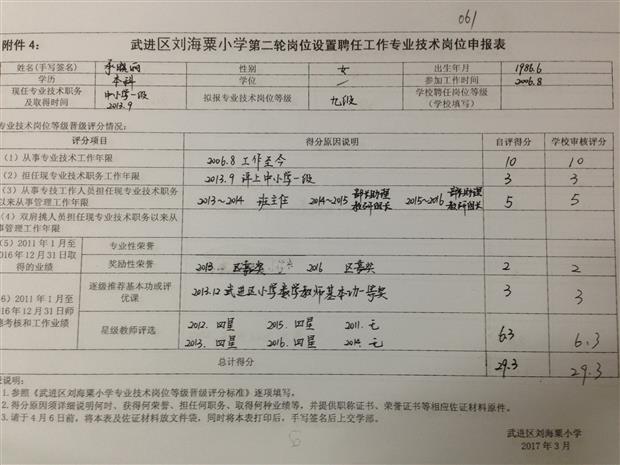 061
附件4: 武进区刘海粟小学第二轮岗位设置聘任工作专业技术岗位申报表
姓名(手写签名) 性别 女 出生年月 1986.6
学历 本科 学位 / 参加工作时间 2006.8
现任专业技术职务及取得时间 中小学一级 2013.9 拟报专业技术岗位等级 九级 学校聘任岗位等级(学校填写)
专业技术岗位等级晋级评分情况:
评分项目 得分原因说明 自评得分 学校审核评分
(1)从事专业技术工作年限 2006.8 工作至今 10 10
(2)担任现专业技术职务工作年限 2013.9 评上中小学一级 3 3
(3)从事专技工作人员担任现专业技术职务以来从事管理工作年限 2013~2014 班主任 2014~2015 教研组长 2015~2016 教研组长 5 5
(4)双肩挑人员担任现专业技术职务以来从事管理工作年限
(5)2011年1月至2016年12月31日取得的业绩 专业性荣誉
奖励性荣誉 2013 区嘉奖 2016 区嘉奖 2 2
(6)2011年1月至2016年12月31日师德考核和工作业绩 逐级推荐基本功或评优课 2013.12 武进区小学数学教师基本功一等奖 3 3
星级教师评选 2012. 四星 2015. 四星 2011. 无
2013. 四星 2016. 四星 2014. 无 6.3 6.3
总计得分 29.3 29.3
说明:
1.参照《武进区刘海粟小学专业技术岗位等级晋级评分标准》逐项填写。
2.得分原因须详细说明何时、获得何荣誉、担任何职务、取得何种业绩等,并提供职称证书、荣誉证书等相应佐证材料原件。
3.请于4月6日前,将本表及佐证材料放文件袋,同时将本表打印后,手写签名后上交学部。
武进区刘海粟小学
2017年3月